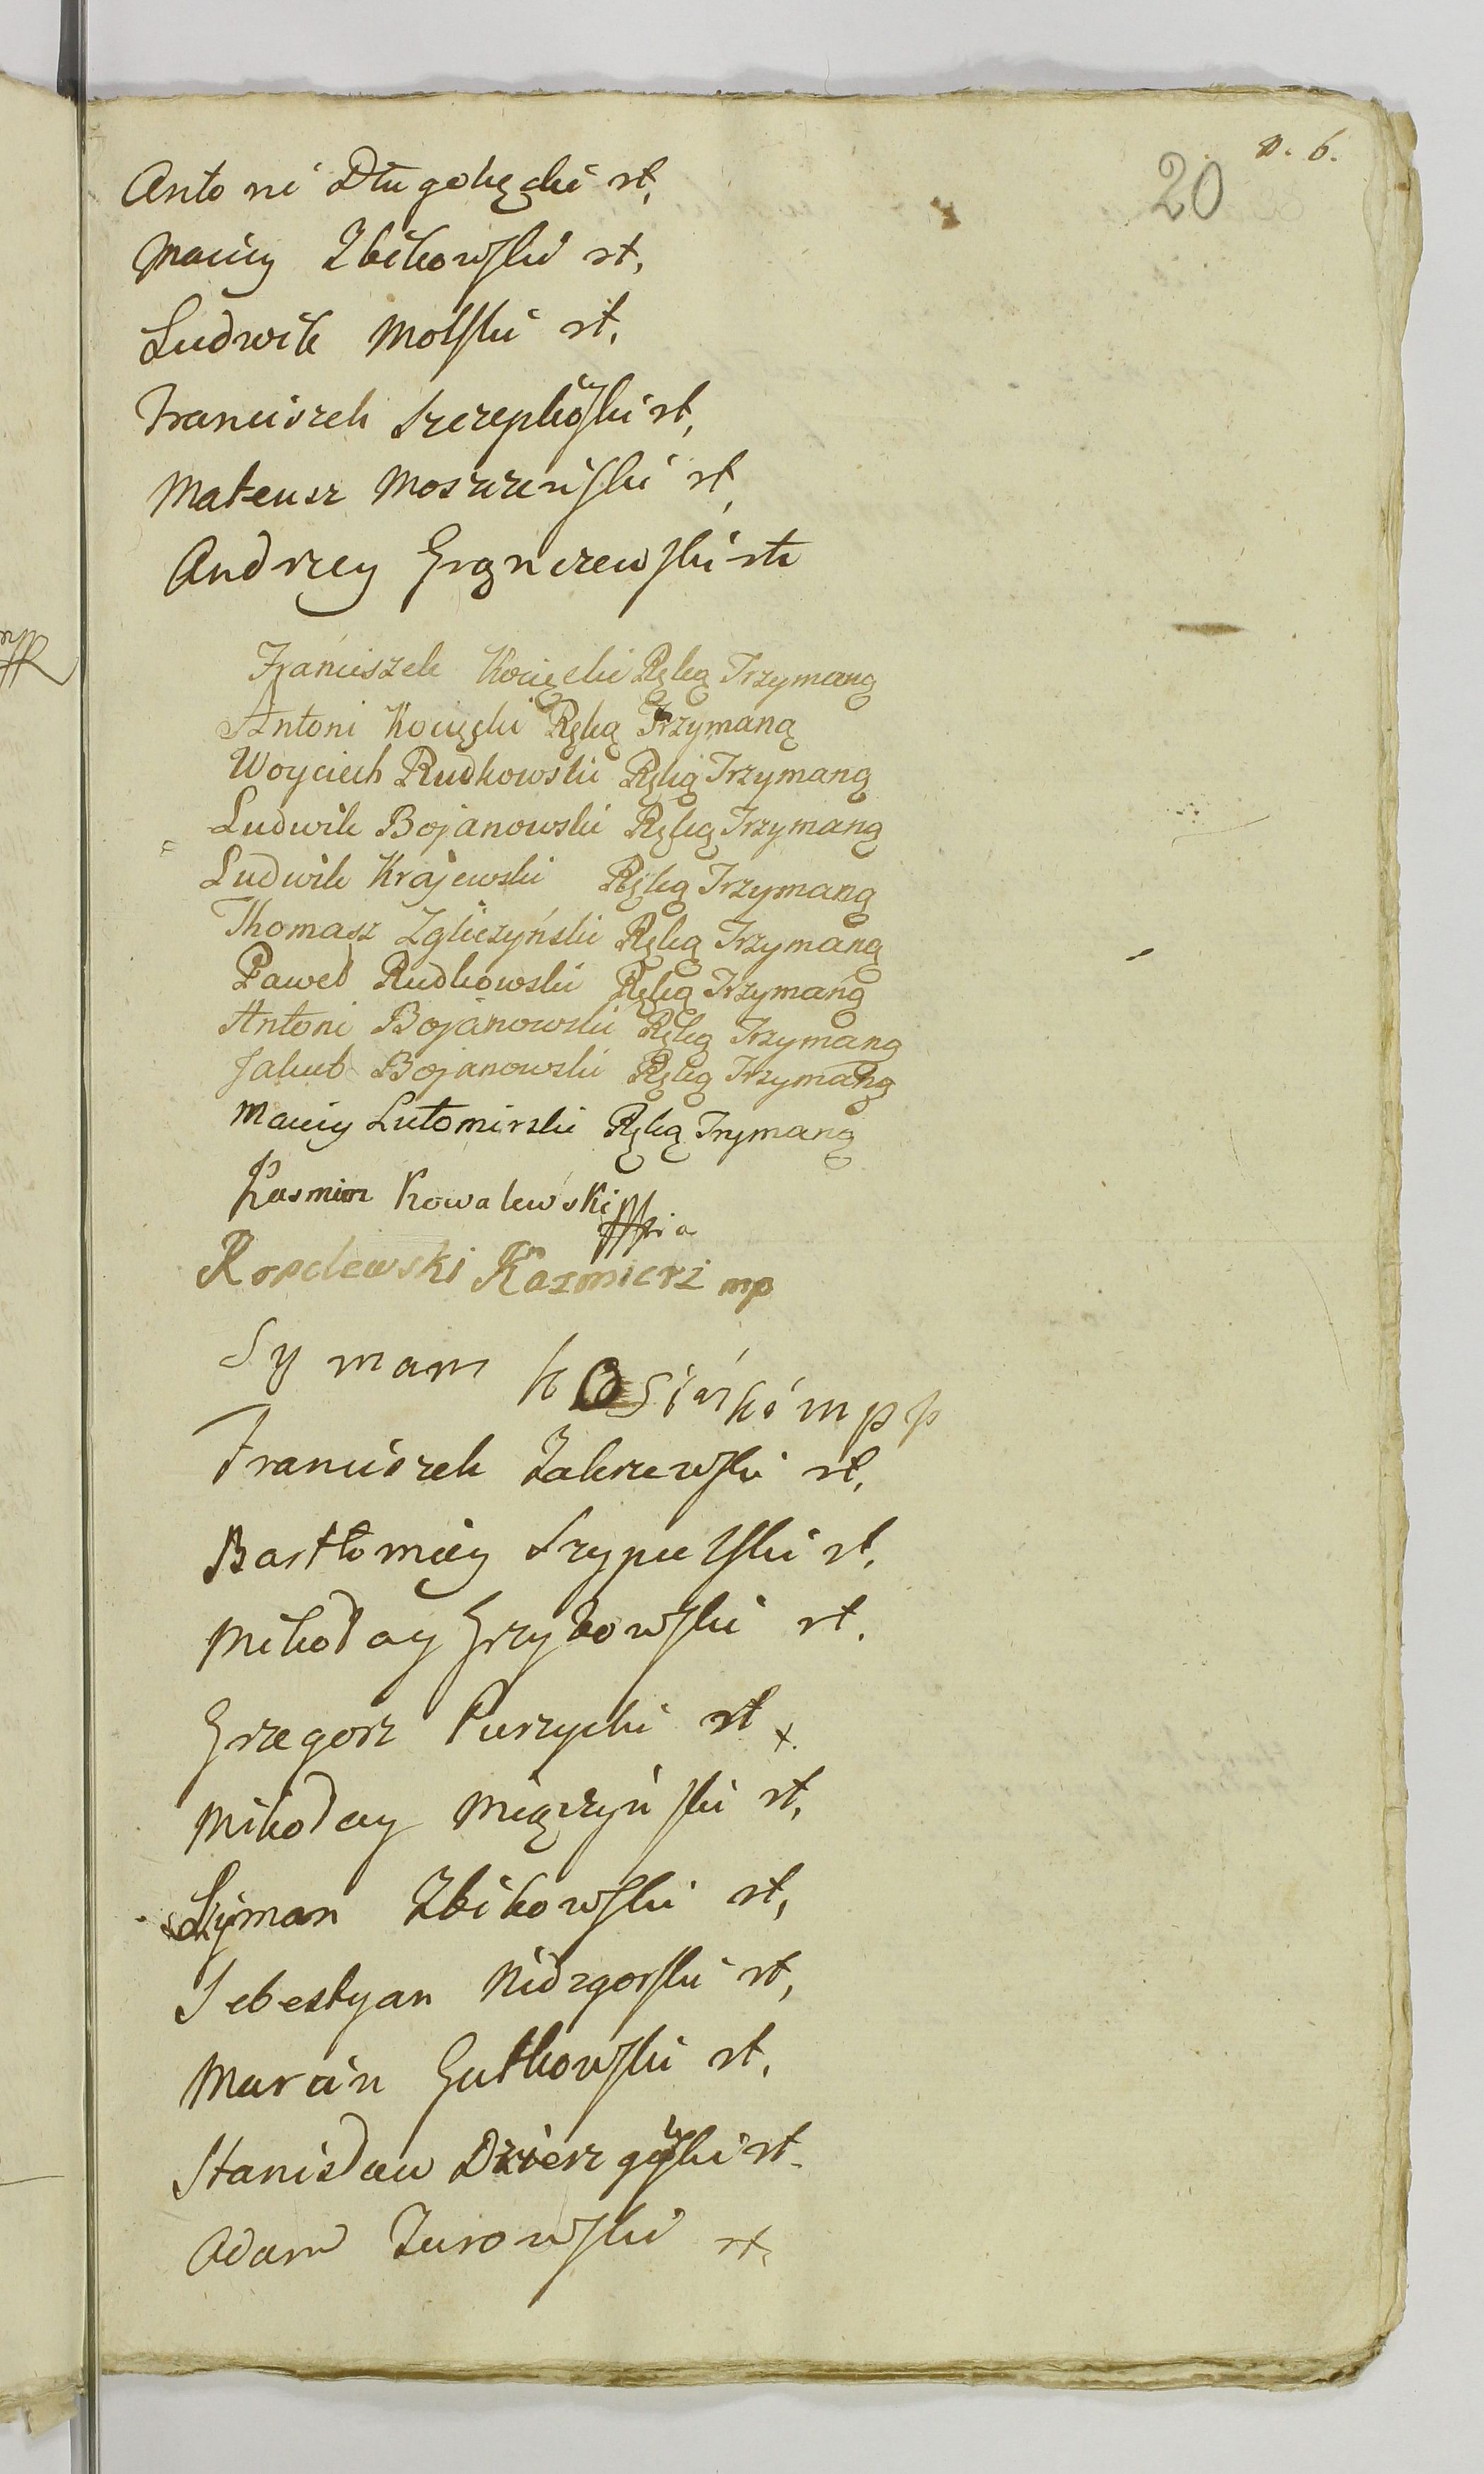 n. 6.
20
Antoni Długołęcki rt,
Maciey Zbikowski rt,
Ludwik Molski rt,
Franciszek Szczepkoski rt,
Mateusz Moszczeński rt,
Andrzey Grąnczewski rt
Franciszek Kocięcki Ręką Trzymaną
Antoni Kocięcki Ręką Trzymaną
Woyciech Rudkowski Ręką Trzymaną
Ludwik Bojanowski Ręką Trzymaną
Ludwik Krajewski Ręką Trzymaną
Thomasz Zgliczyński Ręką Trzymaną
Paweł Rudkowski Ręką Trzymaną
Antoni Bojanowski Ręką Trzymaną
Jakub Bojanowski Ręką Trzymaną
Maciy Lutomirski Ręką Trymaną
Kasmirz Kowalewski
Ropelewski Kazmierz mp
Syman mpp
Franciszek Zakrzewski rt,
Bartłomiey Szypulski rt,
Mikołay Grzybowski rt.
Grzegorz Purzycki rt x.
Mikołay Miączyński rt,
Szyman Zbikowski rt,
Sebestyan Nidzgorski rt,
Marcin Gutkowski rt,
Stanisław Dzierzgoski rt.
Adam Zurowski rt,